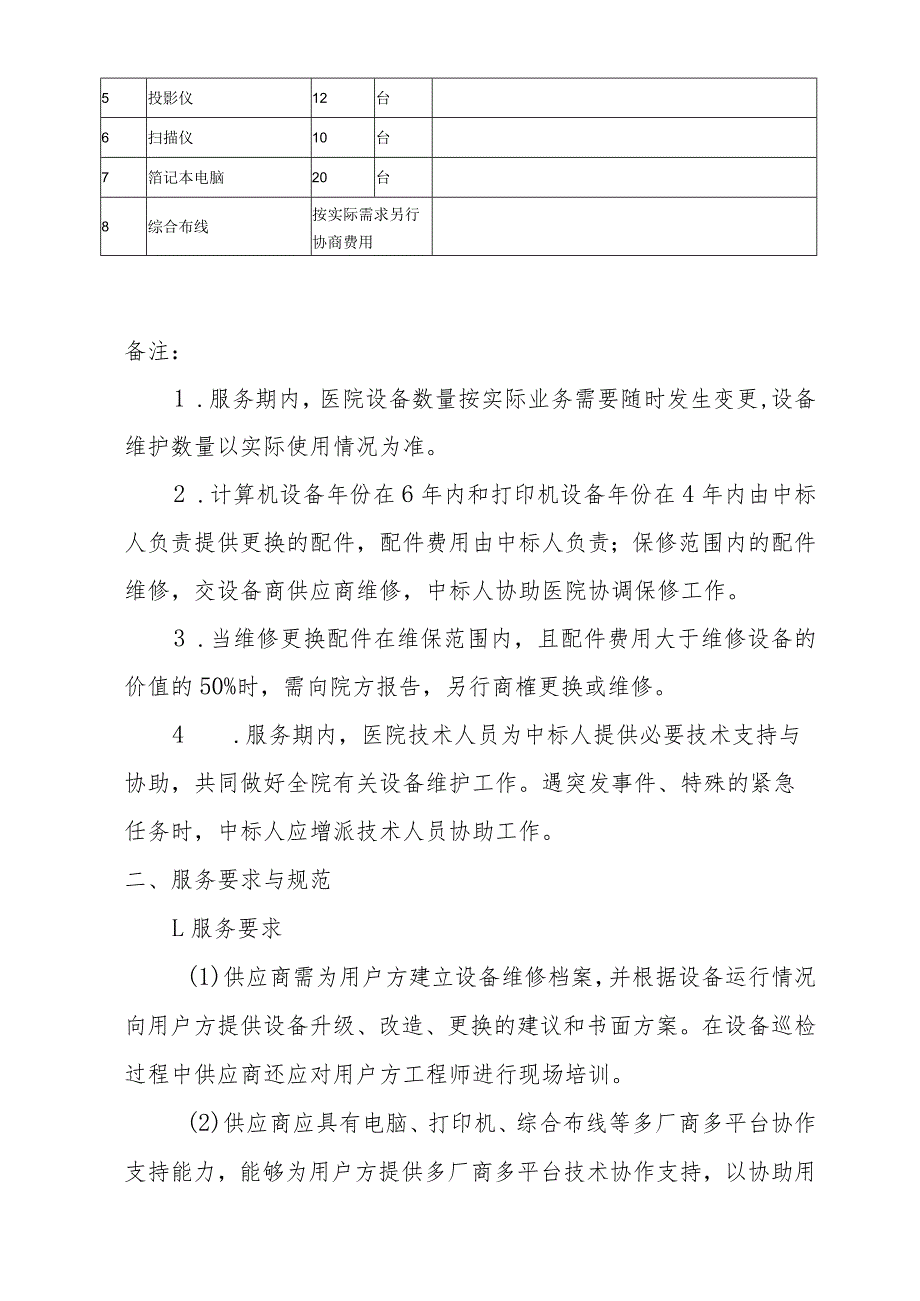 5 投影仪 12 台
6 扫描仪 10 台
7 箔记本电脑 20 台
8 综合布线 按实际需求另行
协商费用
备注：
1 .服务期内，医院设备数量按实际业务需要随时发生变更,设备
维护数量以实际使用情况为准。
2 .计算机设备年份在6年内和打印机设备年份在4年内由中标
人负责提供更换的配件，配件费用由中标人负责；保修范围内的配件
维修，交设备商供应商维修，中标人协助医院协调保修工作。
3 .当维修更换配件在维保范围内，且配件费用大于维修设备的
价值的50%时，需向院方报告，另行商榷更换或维修。
4 .服务期内，医院技术人员为中标人提供必要技术支持与
协助，共同做好全院有关设备维护工作。遇突发事件、特殊的紧急
任务时，中标人应增派技术人员协助工作。
二、服务要求与规范
L服务要求
(1)供应商需为用户方建立设备维修档案,并根据设备运行情况
向用户方提供设备升级、改造、更换的建议和书面方案。在设备巡检
过程中供应商还应对用户方工程师进行现场培训。
(2)供应商应具有电脑、打印机、综合布线等多厂商多平台协作
支持能力，能够为用户方提供多厂商多平台技术协作支持，以协助用